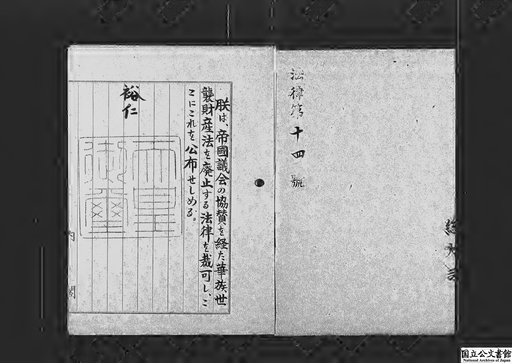 法律第十四號
朕は、帝國議会の協賛を経た華族世
襲財産法を廃止する法律を裁可し、こ
こにこれを公布せしめる。
裕仁
天皇
御璽
内閣
国立公文書館
National Archives of Japan